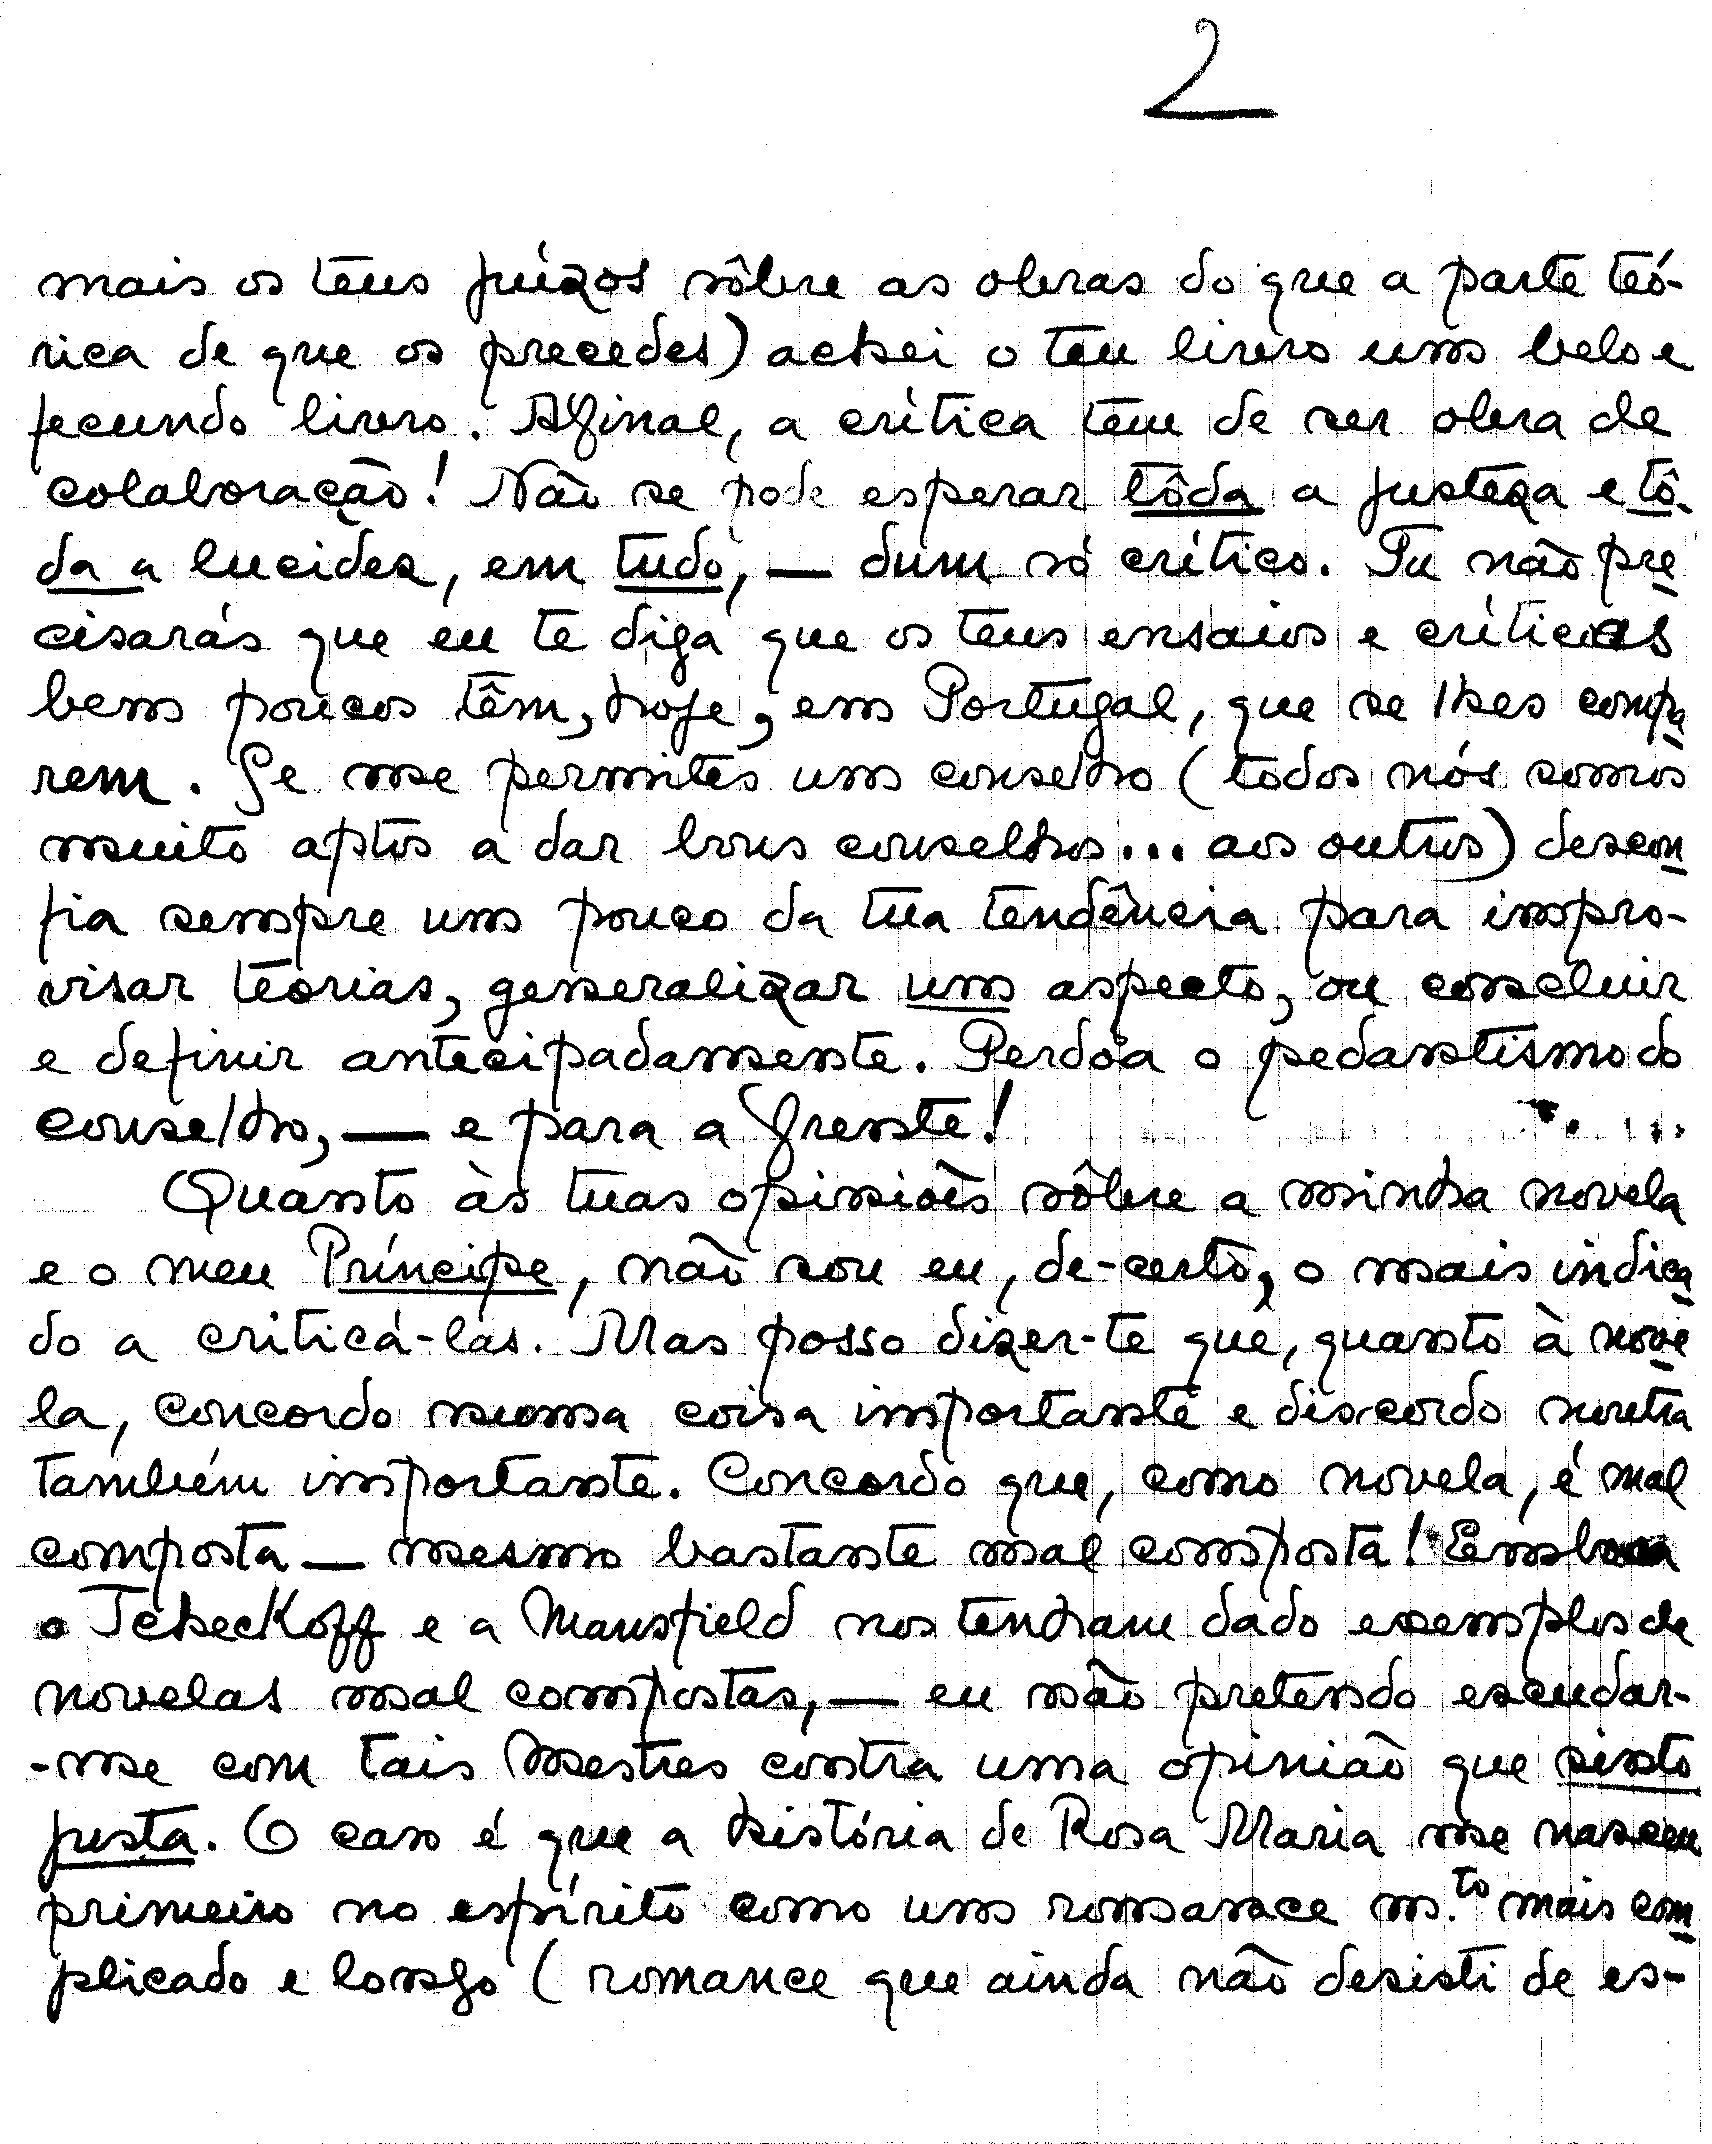 2
mais os teus juízos sôbre as obras do que a parte teó-
rica de que os precedes) achei o teu livro um belo e
fecundo livro. Afinal, a crítica tem de ser obra de
colaboração! Não se pode esperar tôda a justeza e tô-
da a lucidez, em tudo, — dum só crítico. Tu não pre
cisarás que eu te diga que os teus ensaios e críticas
bem poucos têm, hoje, em Portugal, que se lhes compa
rem. Se me permites um conselho (todos nós somos
muito aptos a dar bons conselhos... aos outros) descon
fia sempre um pouco da tua tendência para impro-
visar teorias, generalizar um aspecto, ou concluir
e definir antecipadamente. Perdoa o pedantismo do
conselho, — e para a frente!
Quanto às tuas opiniões sôbre a minha novela
e o meu Príncipe, não sou eu, de-certo, o mais indica
do a criticá-las. Mas posso dizer-te que, quanto à nove
la, concordo numa coisa importante e discordo noutra
também importante. Concordo que, como novela, é mal
composta — mesmo bastante mal composta! Embora
o Tcheckoff e a Mansfield nos tenham dado exemplos de
novelas mal compostas, — eu não pretendo escudar-
-me com tais Mestres contra uma opinião que sinto
justa. O caso é que a história de Rosa Maria me nasceu
primeiro no espírito como um romance m.to mais com
plicado e longo (romance que ainda não desisti de es-